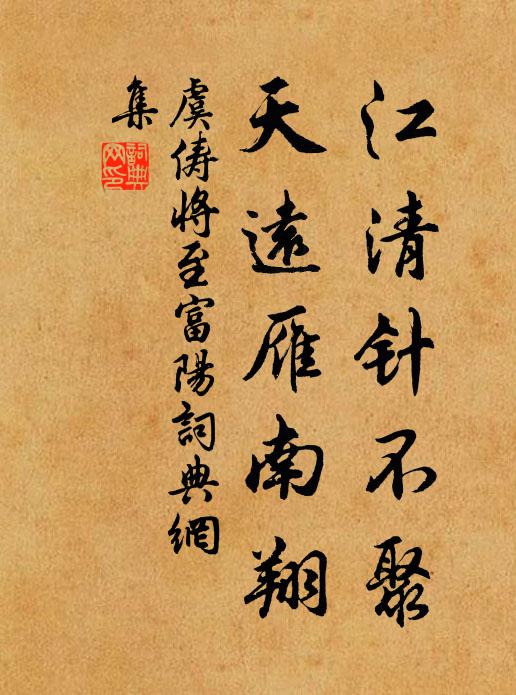 江清针不聚
天遠雁南翔
虞俦將至富陽詞典網
集
詞典網印